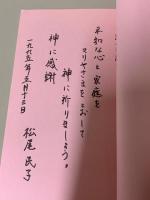 平和な心と家庭を
マリヤさまをとおして
神に祈りましょう。
神に感謝
一九九五年五月十三日
松尾民子